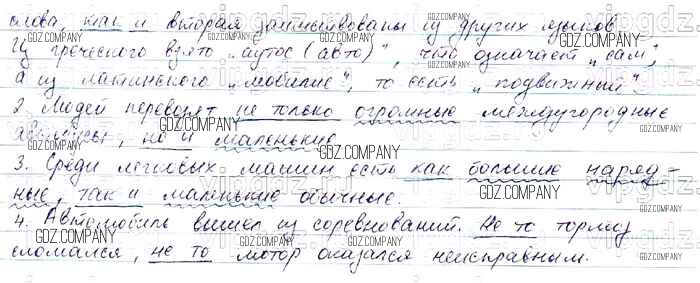 слова, как и вторая заимствованы из других языков
Из греческого взято „аутос (авто)", что означает „сам",
а из латинского „мобилис", то есть „подвижный".
2. Людей перевозят не только огромные междугородные
автобусы, но и маленькие.
3. Среди легковых машин есть как большие наряд-
ные, так и маленькие обычные.
4. Автомобиль вышел из соревнований. Не то тормоз
сломался, не то мотор оказался неисправным.
GDZ.COMPANY
vipgdz.ru